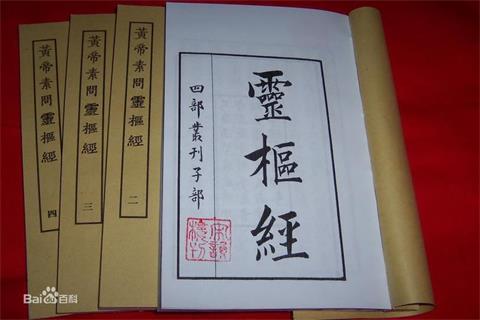 靈樞經
四部叢刊子部
黃帝素問靈樞經
二
黃帝素問靈樞經
三
黃帝素問靈樞經
四
Bai百科